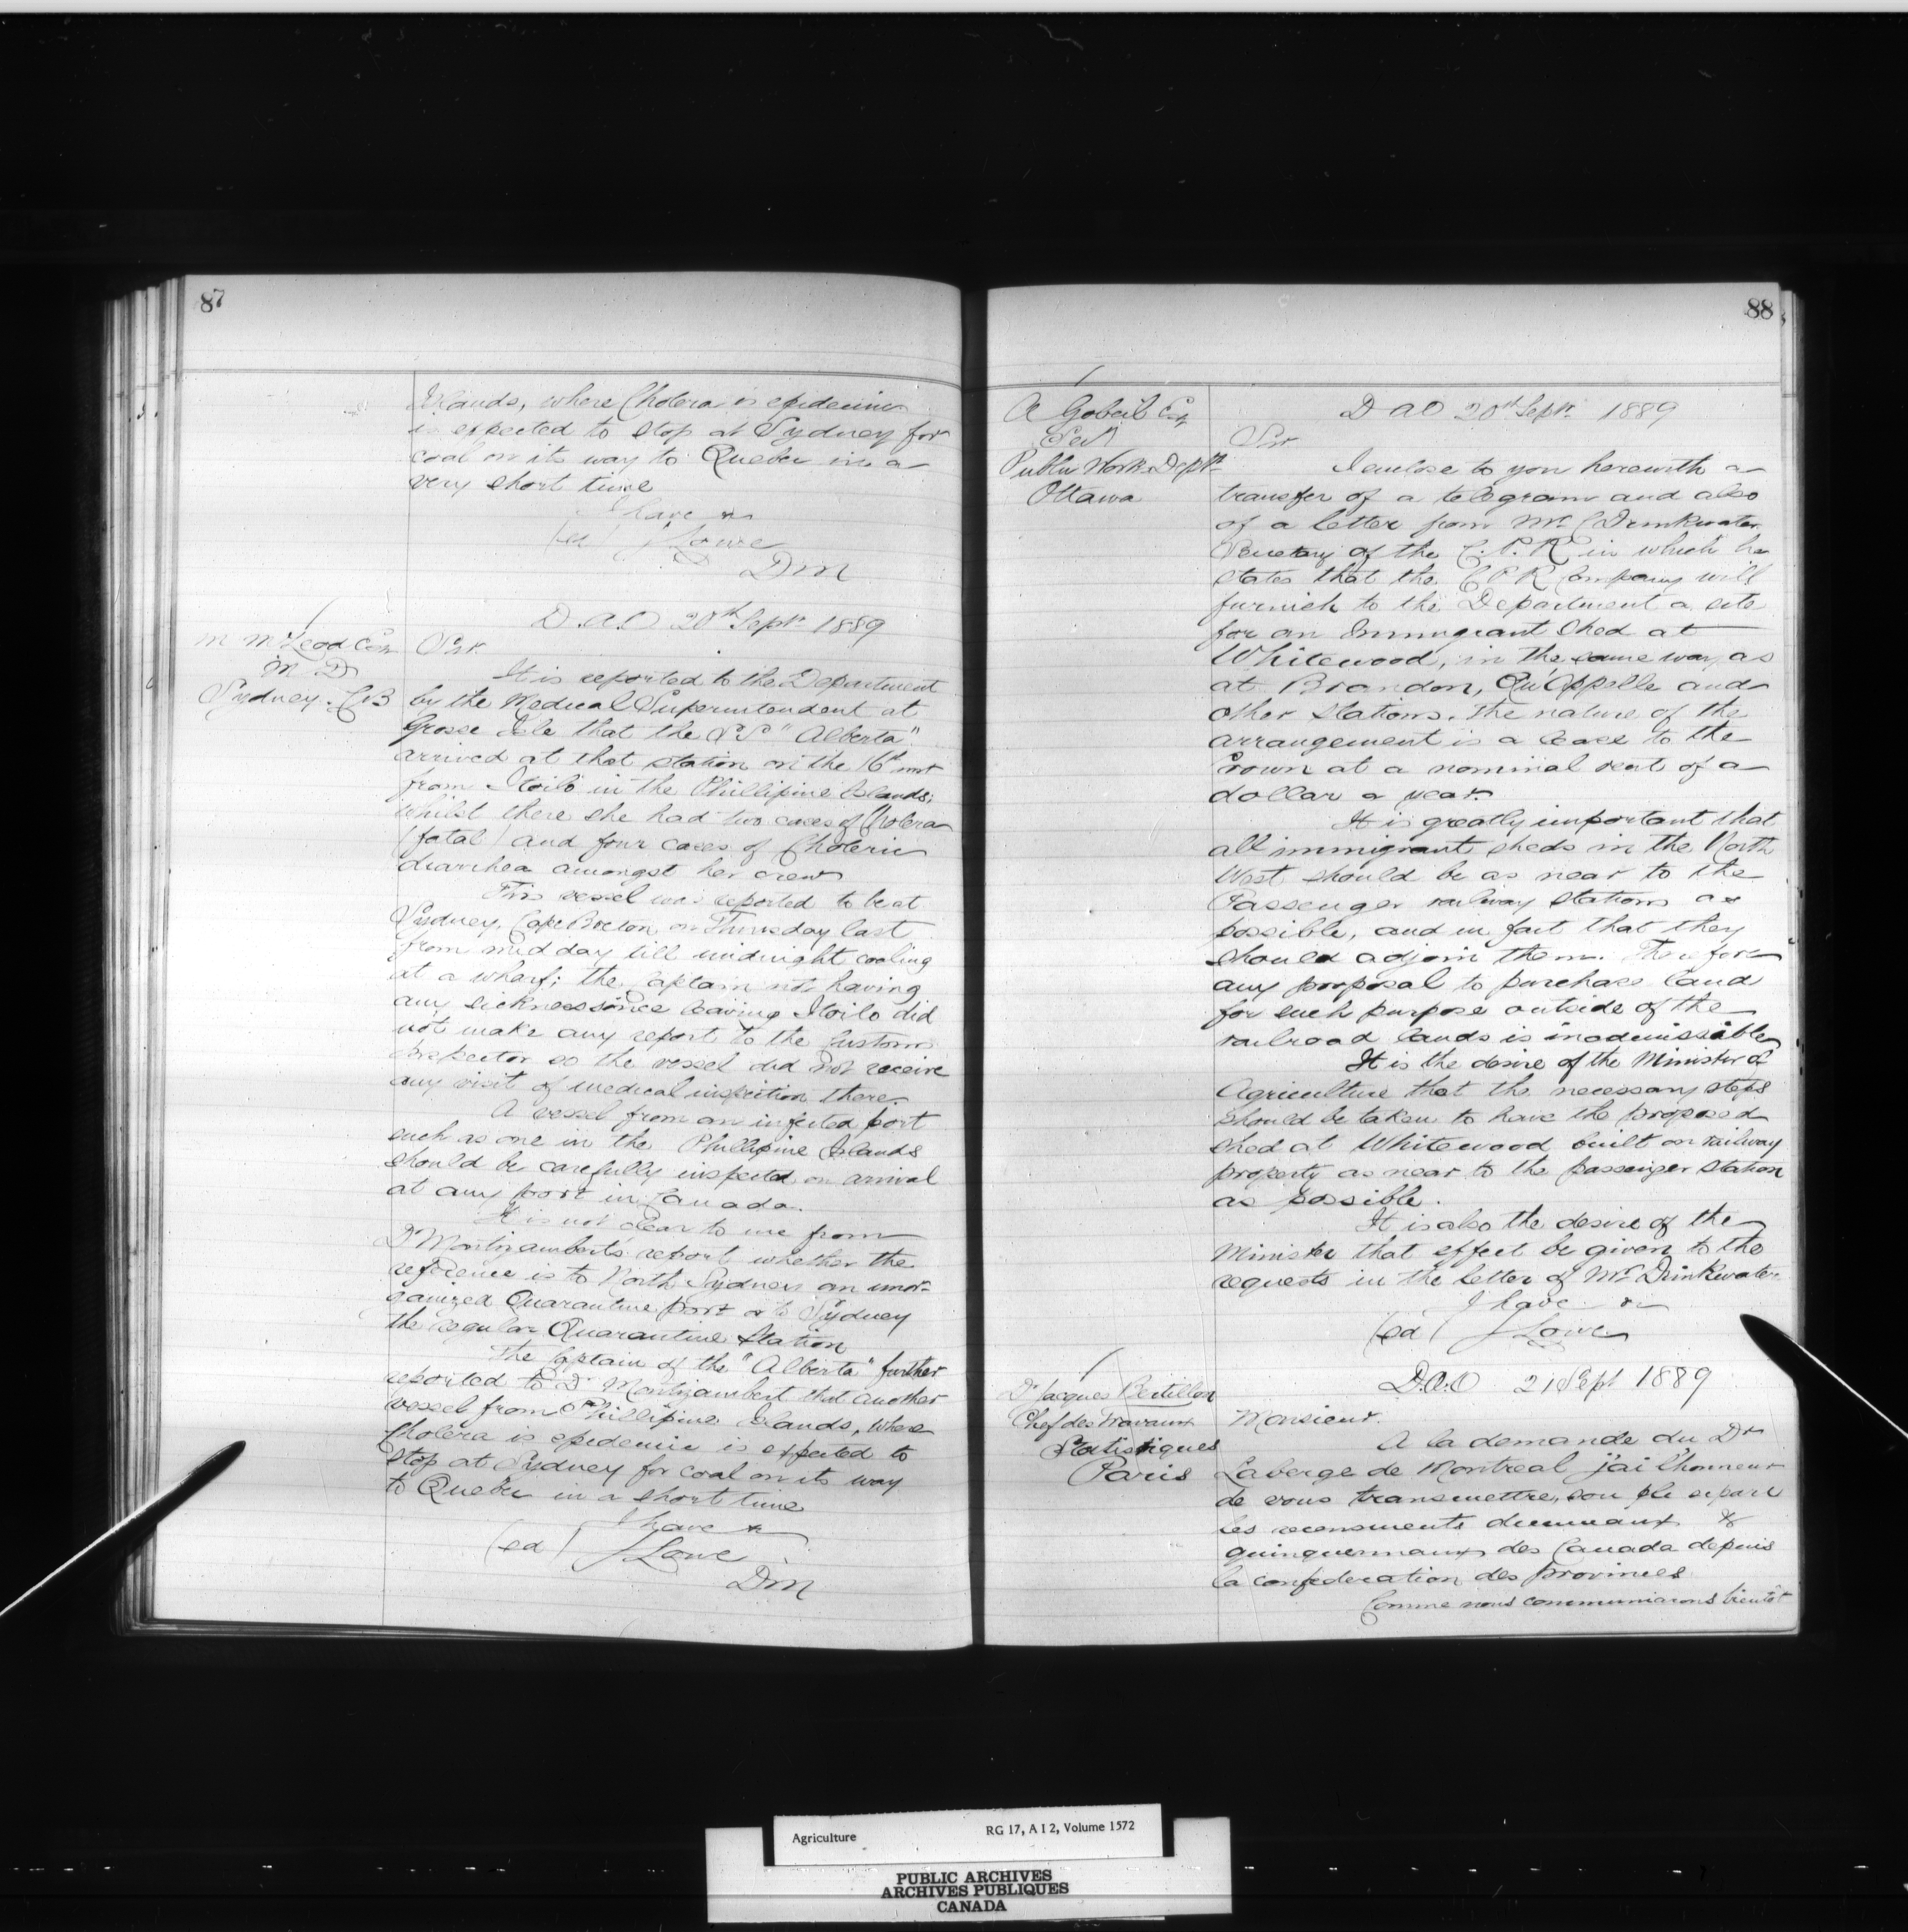 87
Islands, where Cholera is epidemic
is expected to stop at Sydney for
coal on its way to Quebec in a
very short time
I have &c
(sd) J Lowe
DM
D.A.O 20th Septr 1889
M McLeod Esq
M D
Sydney. C.B
Sir.
It is reported to the Department
by the Medical Superintendent at
Grosse Isle that the S.S "Alberta"
arrived at that station on the 16th inst
from Iloilo in the Phillipine Islands;
whilst there she had two cases of Cholera
(fatal) and four cases of Choleric
diarrhea amongst her crew
This vessel was reported to be at
Sydney, Cape Breton, on Thursday last
from mid day till midnight coaling
at a wharf; the Captain not having
any sickness since leaving Iloilo did
not make any report to the Customs
Inspector so the vessel did not receive
any visit of medical inspection there.
A vessel from an infected port
such as one in the Phillipine Islands
should be carefully inspected on arrival
at any port in Canada.
It is not clear to me from
Dr Montizambert's report whether the
reference is to North Sydney an unor-
ganized Quarantine port or to Sydney
the regular Quarantine Station
The Captain of the "Alberta" further
reported to Dr Montizambert that another
vessel from Phillipine Islands, where
Cholera is epedemic is expected to
stop at Sydney for coal on its way
to Quebec in a short time
I have &c
(sd) J Lowe
DM
88
A Gobeil Esq
Sec
Public Works Deptt
Ottawa
D A O 20th Septr 1889
Sir
I enclose to you herewith a
transfer of a telegram and also
of a letter from Mr C Drinkwater
Secretary of the C.P.R in which he
states that the C P R Company will
furnish to the Department a site
for an Immigrant Shed at
Whitewood, in the same way as
at Brandon, Qu'Appelle and
other stations. The nature of the
arrangement is a lease to the
Crown at a nominal rent of a
dollar a year.
It is greatly important that
all immigrant sheds in the North
West should be as near to the
Passenger railway stations as
possible, and in fact that they
should adjoin them. Therefore
any proposal to purchase land
for such purpose outside of the
railroad lands is inadmissible
It is the desire of the Minister of
Agriculture that the necessary steps
should be taken to have the proposed
shed at Whitewood built on railway
property as near to the passenger station
as possible.
It is also the desire of the
Minister that effect be given to the
requests in the letter of Mr Drinkwater
I have &c
(sd) J Lowe
D.A.O 21 Sept 1889
Dr Jacques Bertillon
Chef des Travaux
Statistiques
Paris
Monsieur.
A la demande du Dr
Laberge de Montreal j'ai l'honneur
de vous transmettre, sou pli separé
les recensments decennaux &
quinquennaux des Canada depuis
la confederation des provinces
Comme nous communiarons bientôt
Agriculture RG 17, A I 2, Volume 1572
PUBLIC ARCHIVES
ARCHIVES PUBLIQUES
CANADA